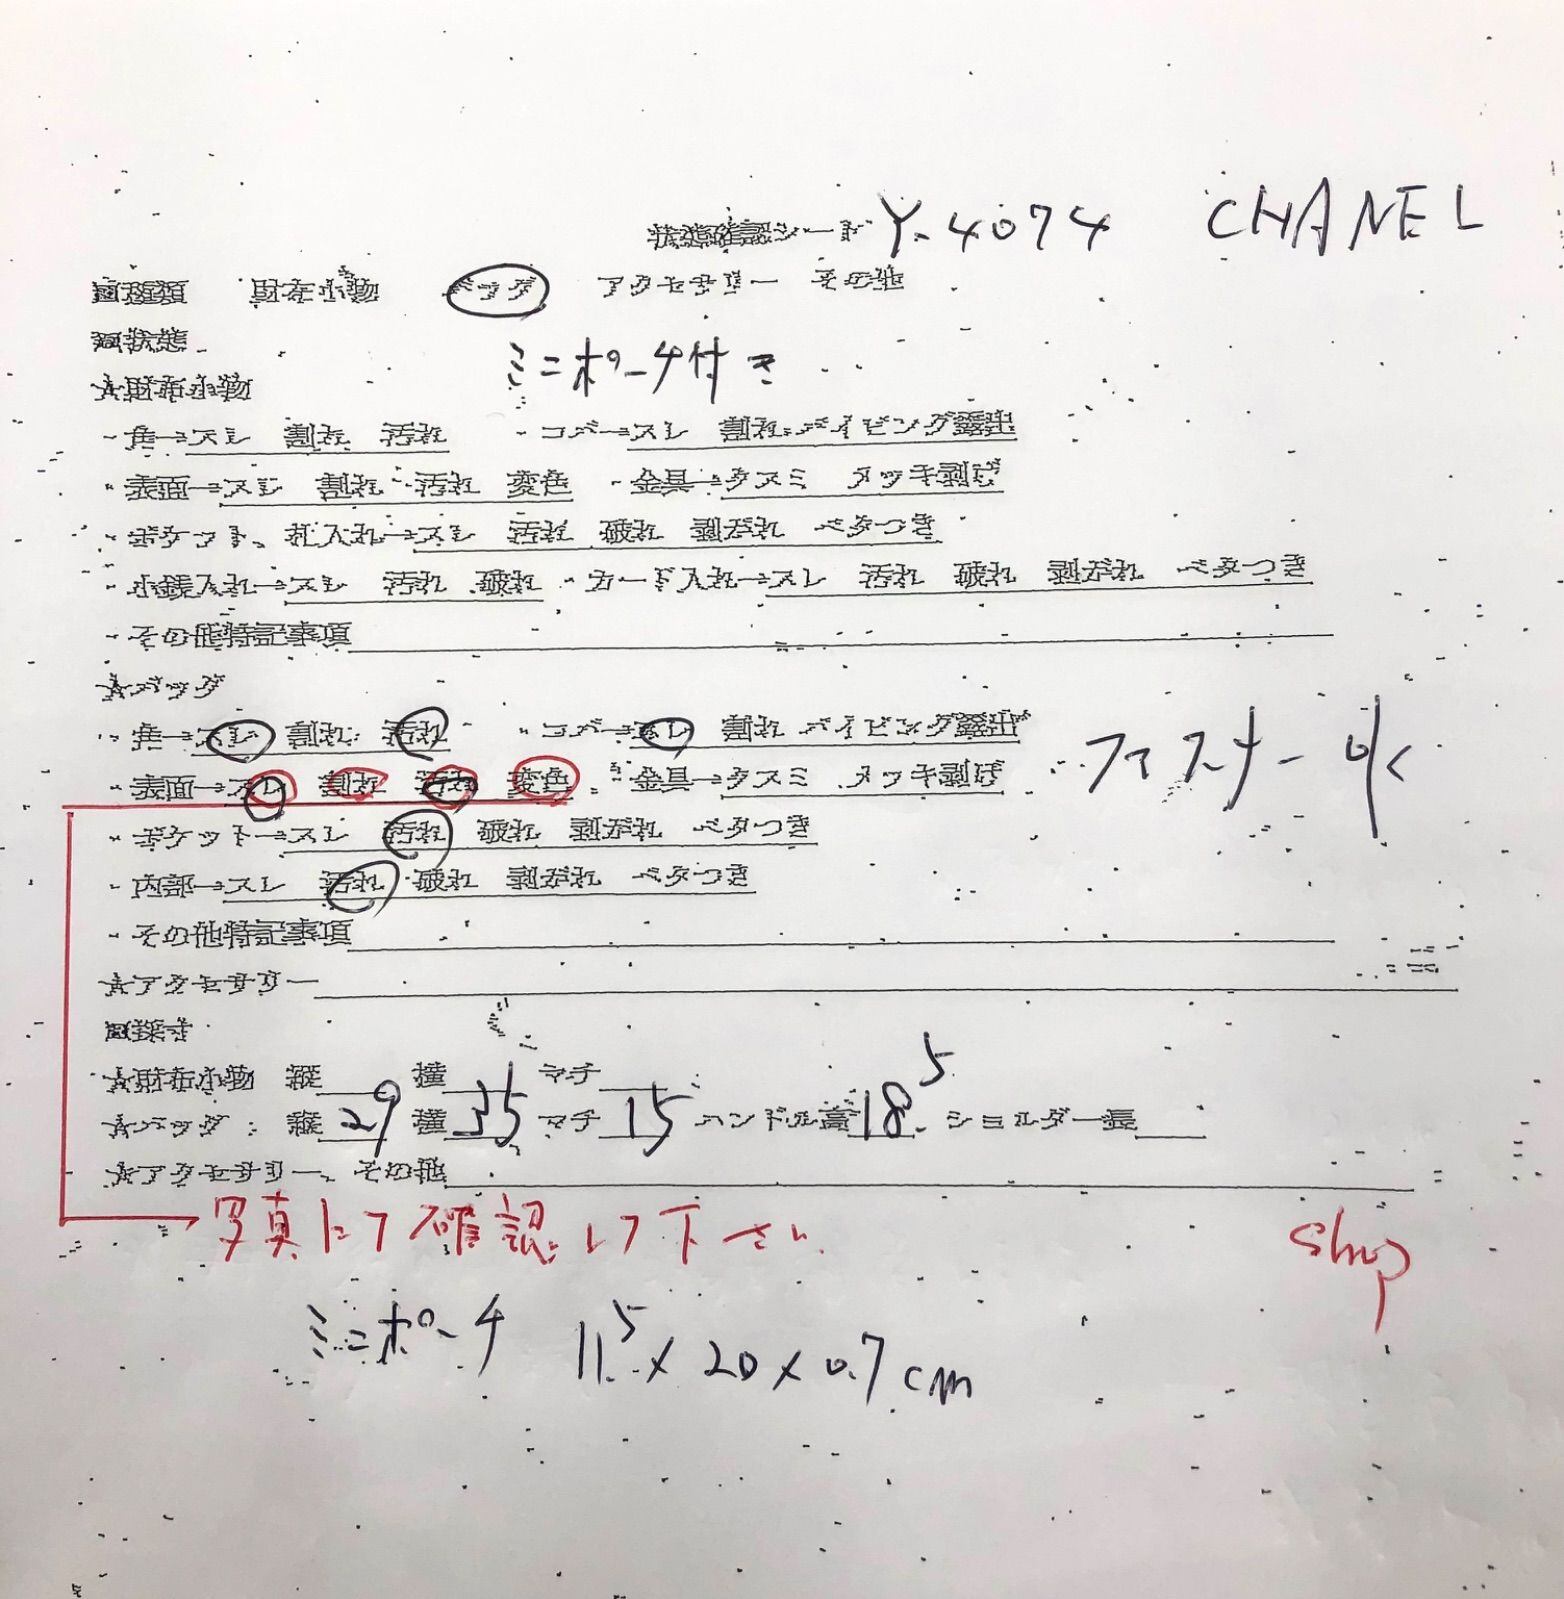 状態確認シート Y-4074 CHANEL
□種類 財布小物 バッグ アクセサリー その他
□状態
ミニポーチ付き
☆財布小物
・角→スレ 割れ 汚れ ・コバ→スレ 割れ パイピング露出
・表面→スレ 割れ 汚れ 変色 ・金具→クスミ メッキ剥げ
・ポケット、札入れ→スレ 汚れ 破れ 剥がれ ベタつき
・小銭入れ→スレ 汚れ 破れ ・カード入れ→スレ 汚れ 破れ 剥がれ ベタつき
・その他特記事項
☆バッグ
・角→スレ 割れ 汚れ ・コバ→スレ 割れ パイピング露出
・表面→スレ 割れ 汚れ 変色 ・金具→クスミ メッキ剥げ ファスナー
・ポケット→スレ 汚れ 破れ 剥がれ ベタつき
・内部→スレ 汚れ 破れ 剥がれ ベタつき
・その他特記事項
☆アクセサリー
□採寸
☆財布小物 縦 横 マチ
☆バッグ 縦 29 横 35 マチ 15 ハンドル高 18.5 ショルダー長
☆アクセサリー、その他
写真にて確認して下さい shop
ミニポーチ 11.5 x 20 x 0.7 cm